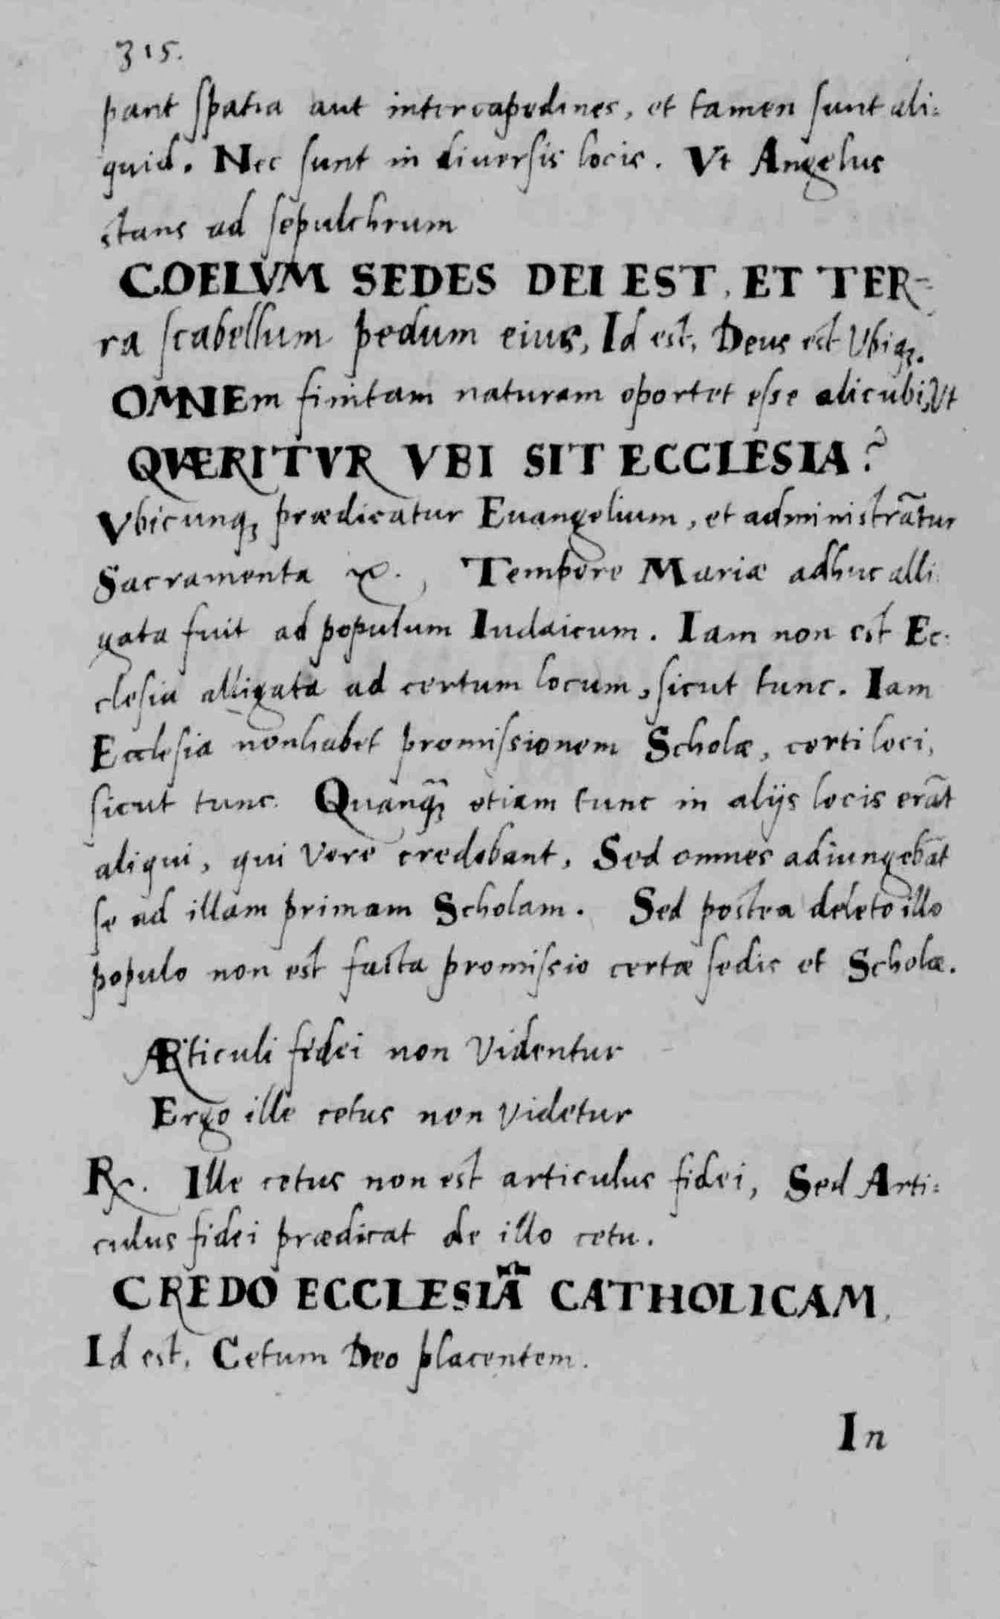 315.
pant spatia aut intercapedines, et tamen sunt ali:
quid. Nec sunt in diuersis locis. Vt Angelus
stans ad sepulchrum
COELVM SEDES DEI EST, ET TER-
ra scabellum pedum eius, Id est, Deus est Vbiqꝫ.
OMNEm finitam naturam oportet esse alicubi, Vt
QVÆRITVR VBI SIT ECCLESIA?
Vbicunqꝫ prædicatur Euangelium, et administrãtur
Sacramenta &c., Tempore Mariæ adhuc alli
gata fuit ad populum Iudaicum. Iam non est Ec:
clesia alligata ad certum locum, sicut tunc. Iam
Ecclesia non habet promissionem Scholæ, certi loci,
sicut tunc. Quanqꝫ̃ etiam tunc in alijs locis erãt
aliqui, qui vere credebant, Sed omnes adiungebãt
se ad illam primam Scholam. Sed postea deleto illo
populo non est facta promissio certæ sedis et Scholæ.
ARticuli fidei non videntur
Ergo ille cetus non videtur
R. Ille cetus non est articulus fidei, Sed Arti:
culus fidei prædicat de illo cetu.
CREDO ECCLESIÃ CATHOLICAM,
Id est, Cetum Deo placentem.
In